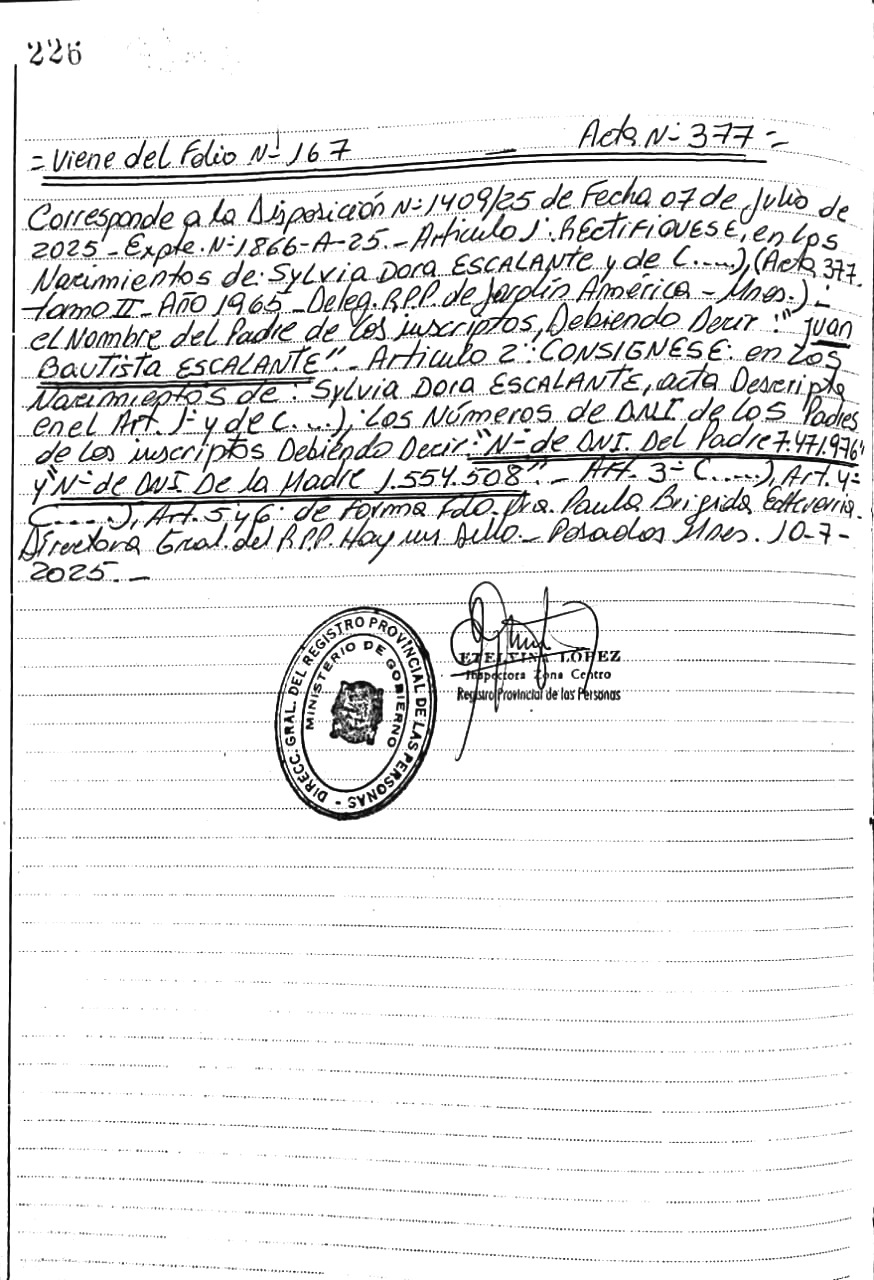 226
= Viene del Folio Nº 167 — Acta Nº 377 =
Corresponde a la Disposición Nº 1409/25 de Fecha 07 de Julio de
2025 - Expte. Nº 1866-A-25. - Articulo 1º: RECTIFIQUESE, en los
Nacimientos de: SYLVIA DORA ESCALANTE y de (.....), (Acta 377.
tomo II - AÑO 1965 - Deleg. R.P.P. de Jardín América - Mnes.) -
el Nombre del Padre de los inscriptos, Debiendo Decir: "Juan
BAUTISTA ESCALANTE". - Articulo 2º: CONSIGNESE: en los
Nacimientos de: SYLVIA DORA ESCALANTE, acta Descripta
en el Art. 1º y de (....); los Números de DNI de los Padres
de los inscriptos Debiendo Decir: "Nº de DNI. Del Padre 7.471.976"
y "Nº de DNI. De la Madre 1.554.508". - Art. 3º (.....), Art. 4º
(.....), Art. 5 y 6: de forma Fdo. Dra. Paula Brigida Echeverria.
Directora Gral. del R.P.P. Hay un Sello. - Posadas Mnes. 10-7-
2025. -
DIRECC. GRAL. DEL REGISTRO PROVINCIAL DE LAS PERSONAS -
MINISTERIO DE GOBIERNO
ETELVINA LOPEZ
Inspectora Zona Centro
Registro Provincial de las Personas